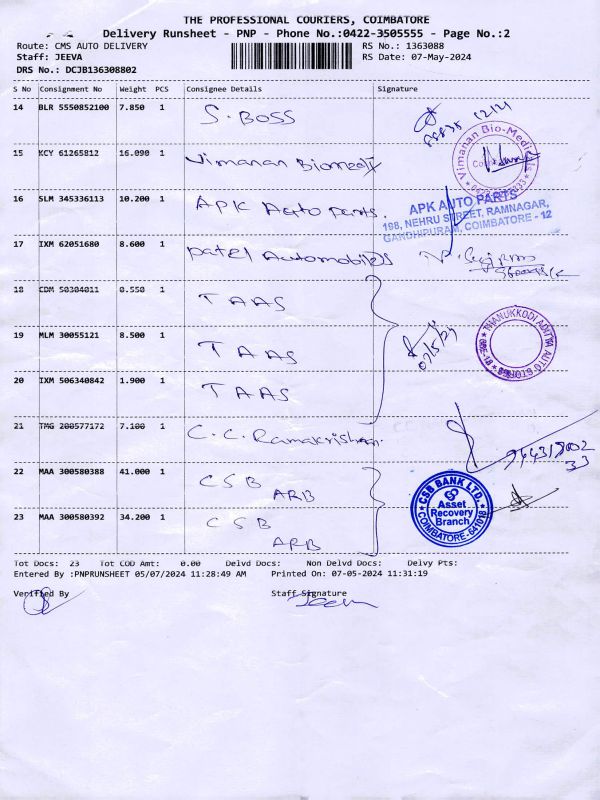 THE PROFESSIONAL COURIERS, COIMBATORE
Delivery Runsheet - PNP - Phone No.:0422-3505555 - Page No.:2
Route: CMS AUTO DELIVERY
RS No.: 1363088
Staff: JEEVA
RS Date: 07-May-2024
DRS No.: DCJB136308802
S No Consignment No Weight PCS Consignee Details Signature
14 BLR 5550852100 7.850 1 S. BOSS
15 KCY 61265812 16.090 1 Vimanan Biomedi
Vimanan Bio-Medicals
16 SLM 345336113 10.200 1 APK Auto parts.
APK AUTO PARTS
198, NEHRU STREET, RAMNAGAR,
GANDHIPURAM, COIMBATORE - 12
17 IXM 62051680 8.600 1 Patel Automobiles
18 CDM 50304011 0.550 1 TAAS
19 MLM 30055121 8.500 1 TAAS
07/5/24
THANUKKODI ADITYA AUTO STORES
20 IXM 506340842 1.900 1 TAAS
21 TMG 200577172 7.100 1 C.C. Ramakrishnan.
22 MAA 300580388 41.000 1 CSB
ARB
CSB BANK LTD.
Asset
Recovery
Branch
COIMBATORE-641018
23 MAA 300580392 34.200 1 CSB
ARB
Tot Docs: 23 Tot COD Amt: 0.00 Delvd Docs: Non Delvd Docs: Delvy Pts:
Entered By :PNPRUNSHEET 05/07/2024 11:28:49 AM Printed On: 07-05-2024 11:31:19
Verified By Staff Signature